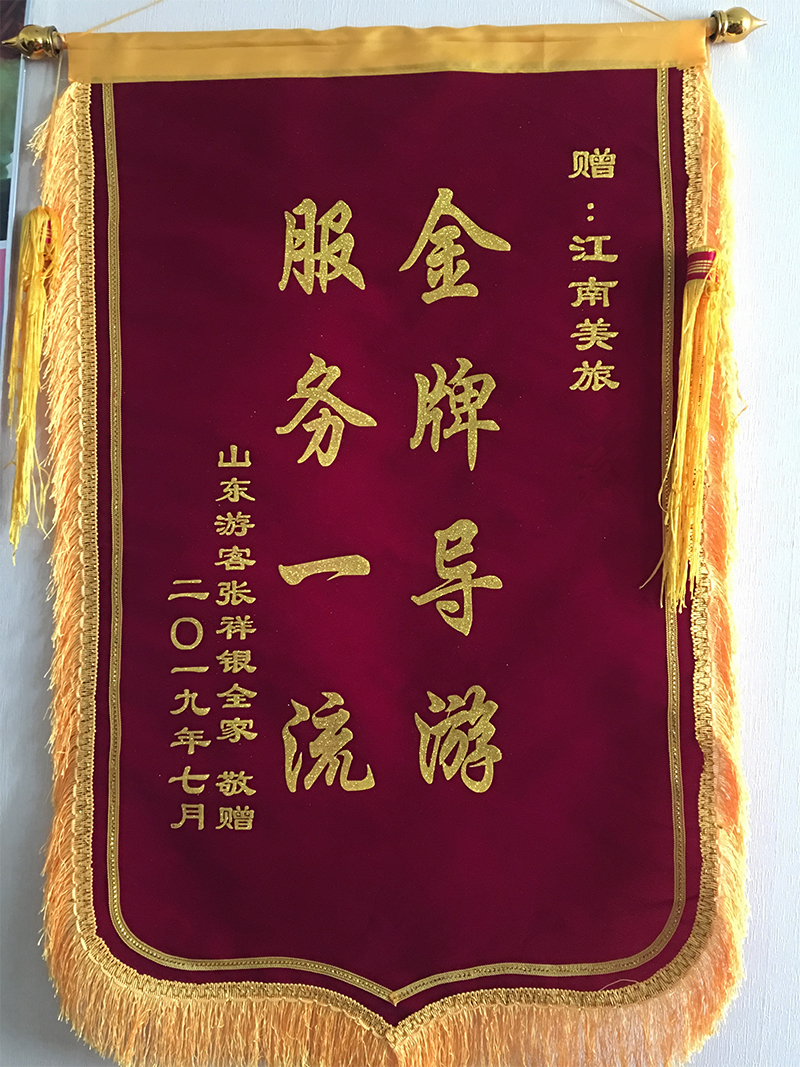 赠：江南美旅
金牌导游
服务一流
山东游客张祥银全家 敬赠
二〇一九年七月